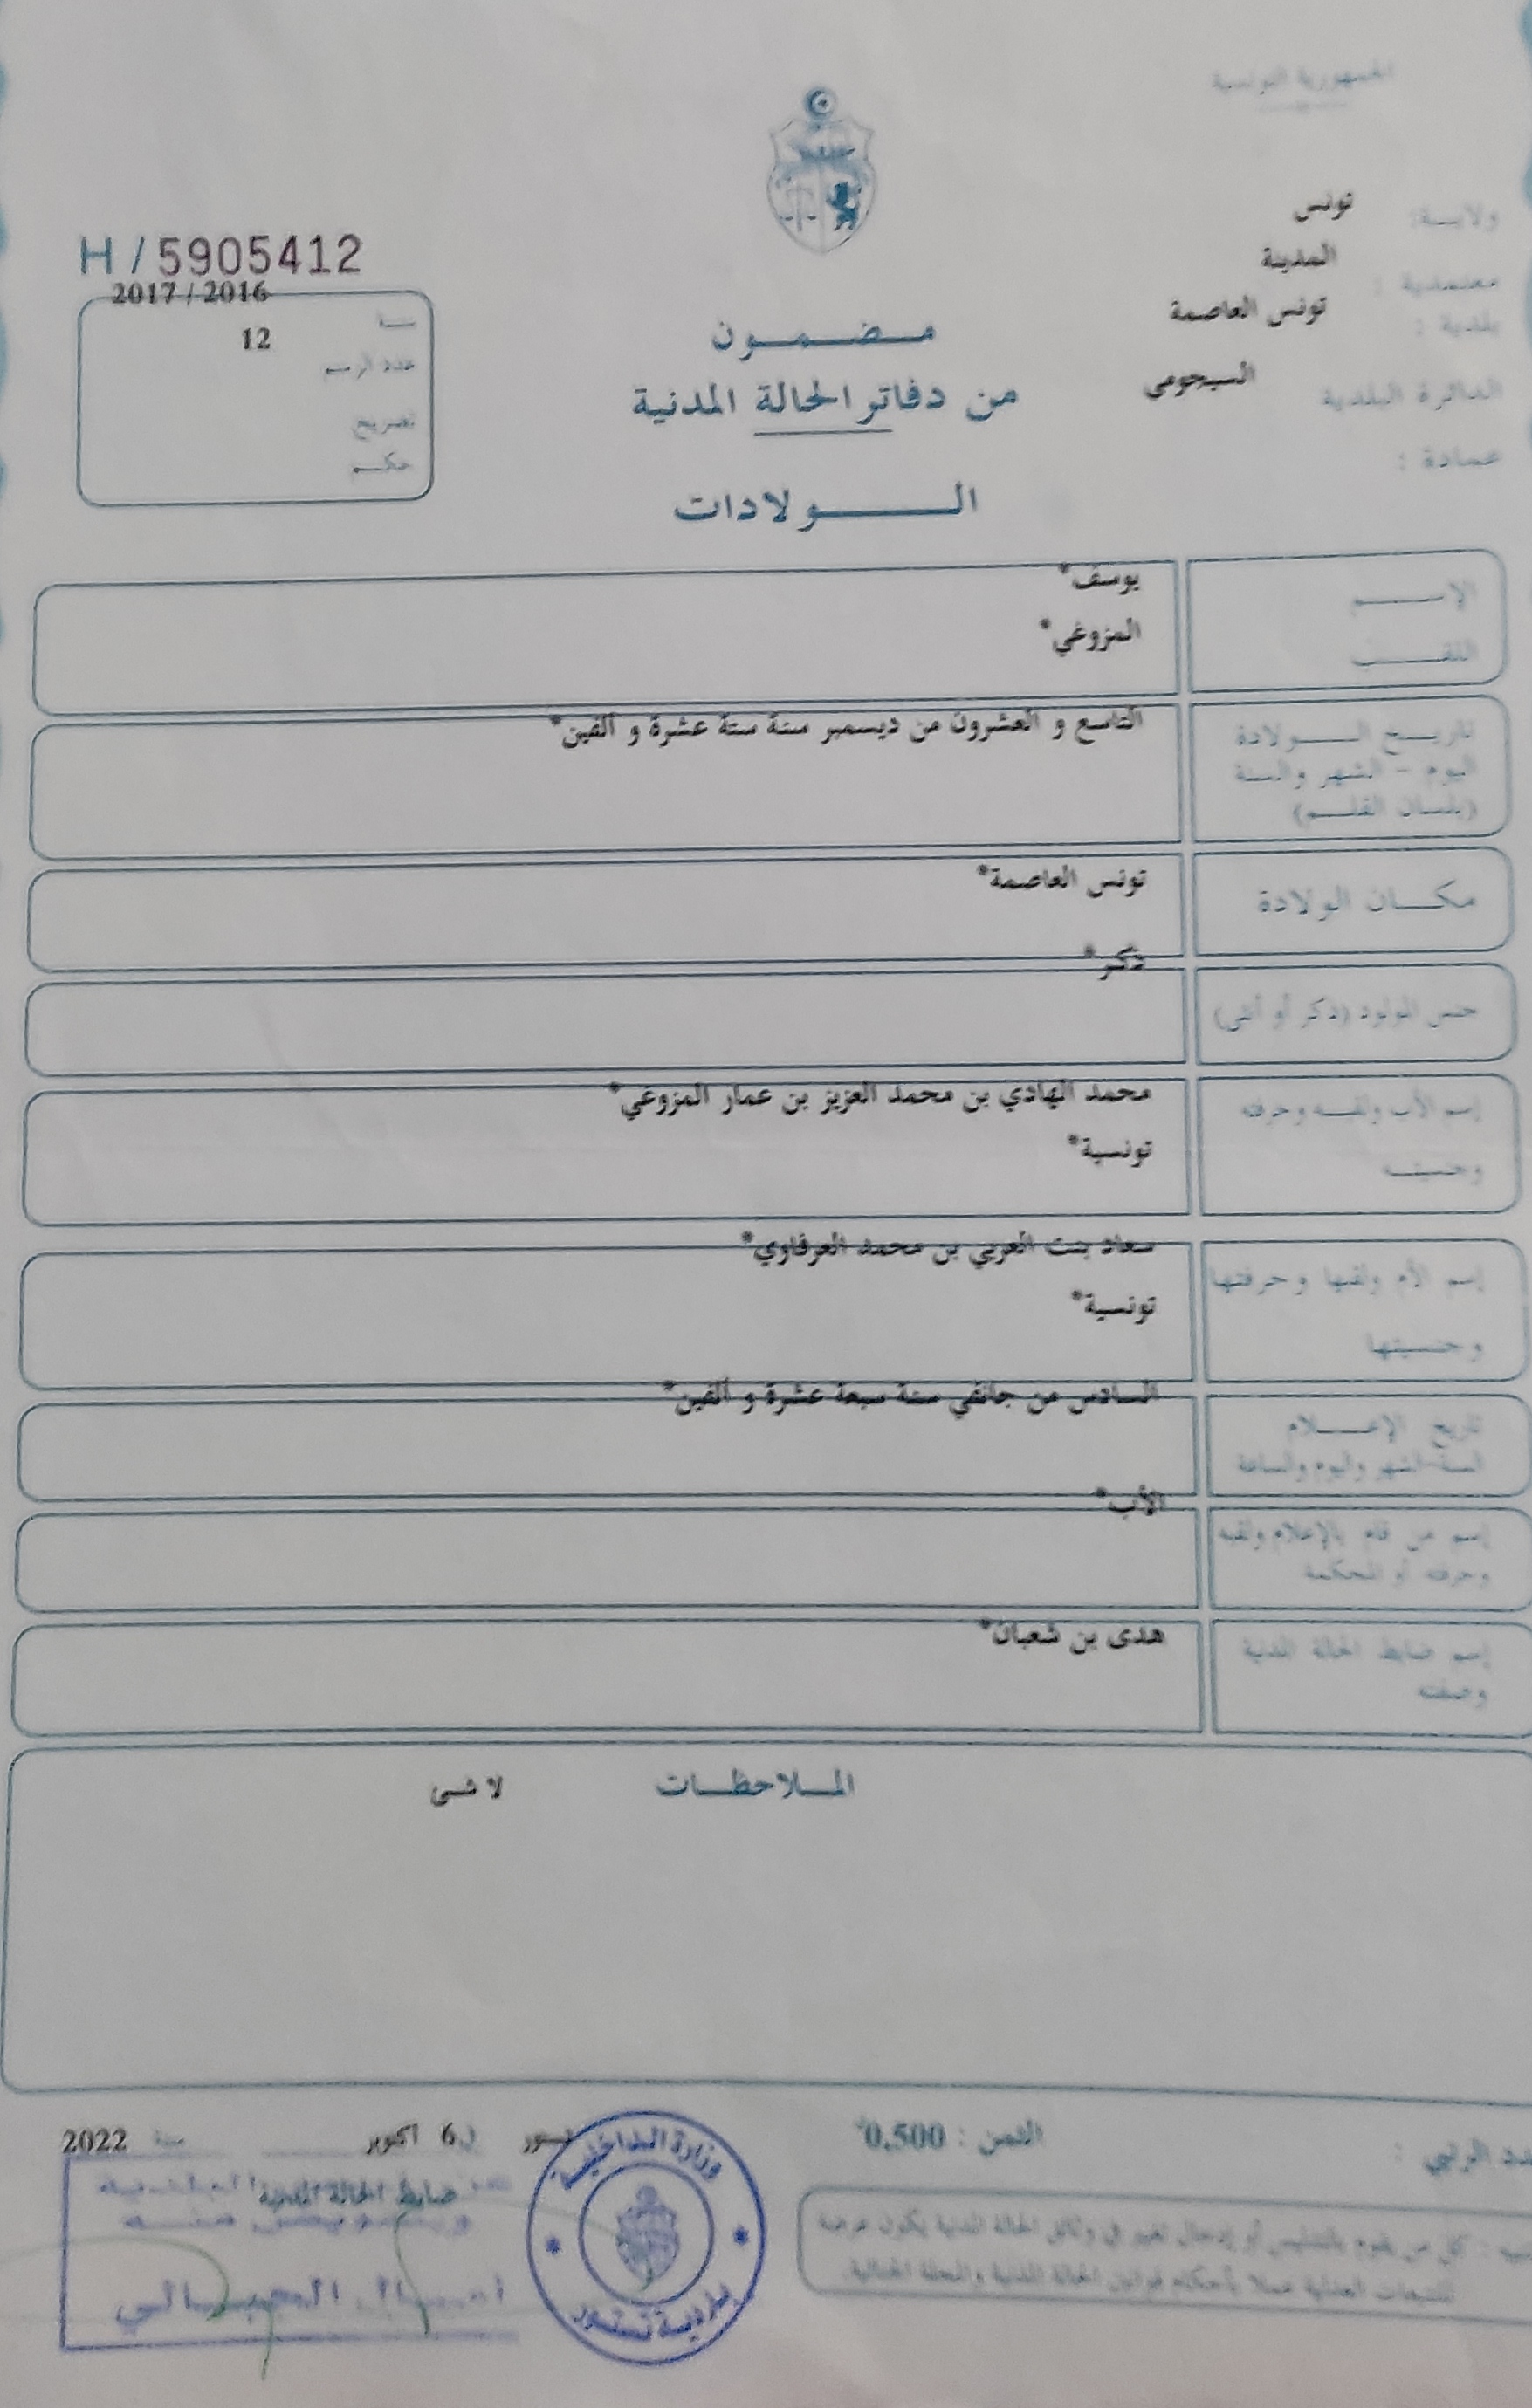 الجمهورية التونسية
ولايـــة: تونس
معتمدية : المدينة
بلدية : تونس العاصمة
الدائرة البلدية السيجومي
عمادة :
H / 5905412
2017 / 2016
سنة
12
عدد الرسم
تصريح
حكم
مضمون
من دفاتر الحالة المدنية
الولادات
الإسم يوسف*
اللقب المزوغي*
تاريخ الولادة التاسع و العشرون من ديسمبر سنة ستة عشرة و ألفين*
اليوم - الشهر والسنة
(بلسان القلم)
مكان الولادة تونس العاصمة*
ذكر*
جنس المولود (ذكر أو أنثى)
إسم الأب ولقبه وحرفته محمد الهادي بن محمد العزيز بن عمار المزوغي*
وجنسيته تونسية*
سعاد بنت العربي بن محمد العرفاوي*
إسم الأم ولقبها وحرفتها
وجنسيتها تونسية*
السادس من جانفي سنة سبعة عشرة و ألفين*
تاريخ الإعلام
السنة-الشهر واليوم والساعة
الأب*
إسم من قام بالإعلام ولقبه
وحرفته أو المحكمة
إسم ضابط الحالة المدنية هدى بن شعبان*
وصفته
الملاحظات لا شى
الثمن : 0,500د
6 اكتوبر سنة 2022
ضابط الحالة المدنية
وزارة الداخلية
بلدية تستور
كل من يقوم بالتدليس أو إدخال تغيير في وثائق الحالة المدنية يكون عرضة
للتتبعات العدلية عملا بأحكام قوانين الحالة المدنية والمجلة الجنائية.